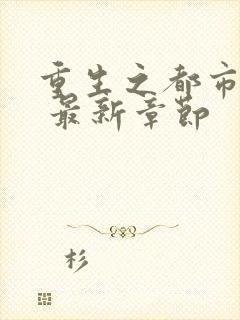 重生之都市
最新章节
杉